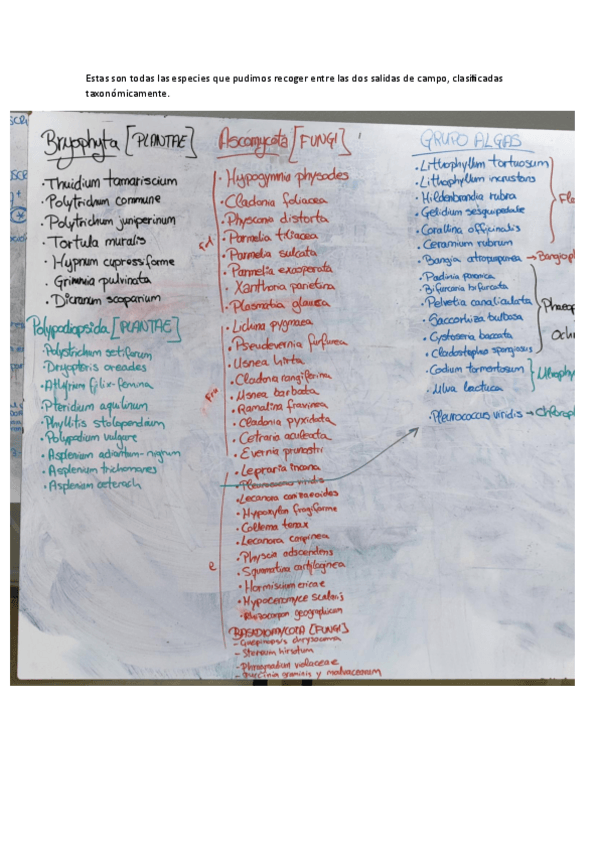 Estas son todas las especies que pudimos recoger entre las dos salidas de campo, clasificadas
taxonómicamente.
Bryophyta [PLANTAE]
• Thuidium tamariscium
• Polytrichum commune
• Polytrichum juniperinum
• Tortula muralis
• Hypnum cupressiforme
• Grimmia pulvinata
• Dicranum scoparium
Polypodiopsida [PLANTAE]
• Polystrichum setiferum
• Dryopteris oreades
• Athyrium filix-femina
• Pteridium aquilinum
• Phyllitis scolopendium
• Polypodium vulgare
• Asplenium adiantum-nigrum
• Asplenium trichomanes
• Asplenium ceterach
Ascomycota [FUNGI]
• Hypogymnia physodes
• Cladonia foliacea
• Physconia distorta
• Parmelia tiliacea
• Parmelia sulcata
• Parmelia exasperata
• Xanthoria parietina
• Plasmatia glauca
• Lichina pygmaea
• Pseudevernia furfurea
• Usnea hirta
• Cladonia rangiferina
• Usnea barbata
• Ramalina fraxinea
• Cladonia pyxidata
• Cetraria aculeata
• Evernia prunastri
• Lepraria incana
• Lecanora conizaeoides
• Hypoxylon fragiforme
• Collema tenax
• Lecanora carpinea
• Physcia adscendens
• Squamarina cartilaginea
• Hormiscium ericae
• Rhizocarpon geographicum
BASIDIOMYCOTA [FUNGI]
- Stereum hirsutum
- Phragmidium violaceae
- Puccinia graminis y malvacearum
GRUPO ALGAS
• Lithophyllum tortuosum
• Lithophyllum incrustans
• Hildenbrandia rubra
• Gelidium sesquipedale
• Corallina officinalis
• Ceramium rubrum
• Bangia atropurpurea → Bangioph
• Padina pavonica
• Bifurcaria bifurcata
• Pelvetia canaliculata
• Saccorhiza bulbosa
• Cystoseira baccata
• Cladostephus spongiosus
Phaeop
Ochr
• Codium tomentosum
• Ulva lactuca
Ulvophy
• Pleurococcus viridis → Chloroph